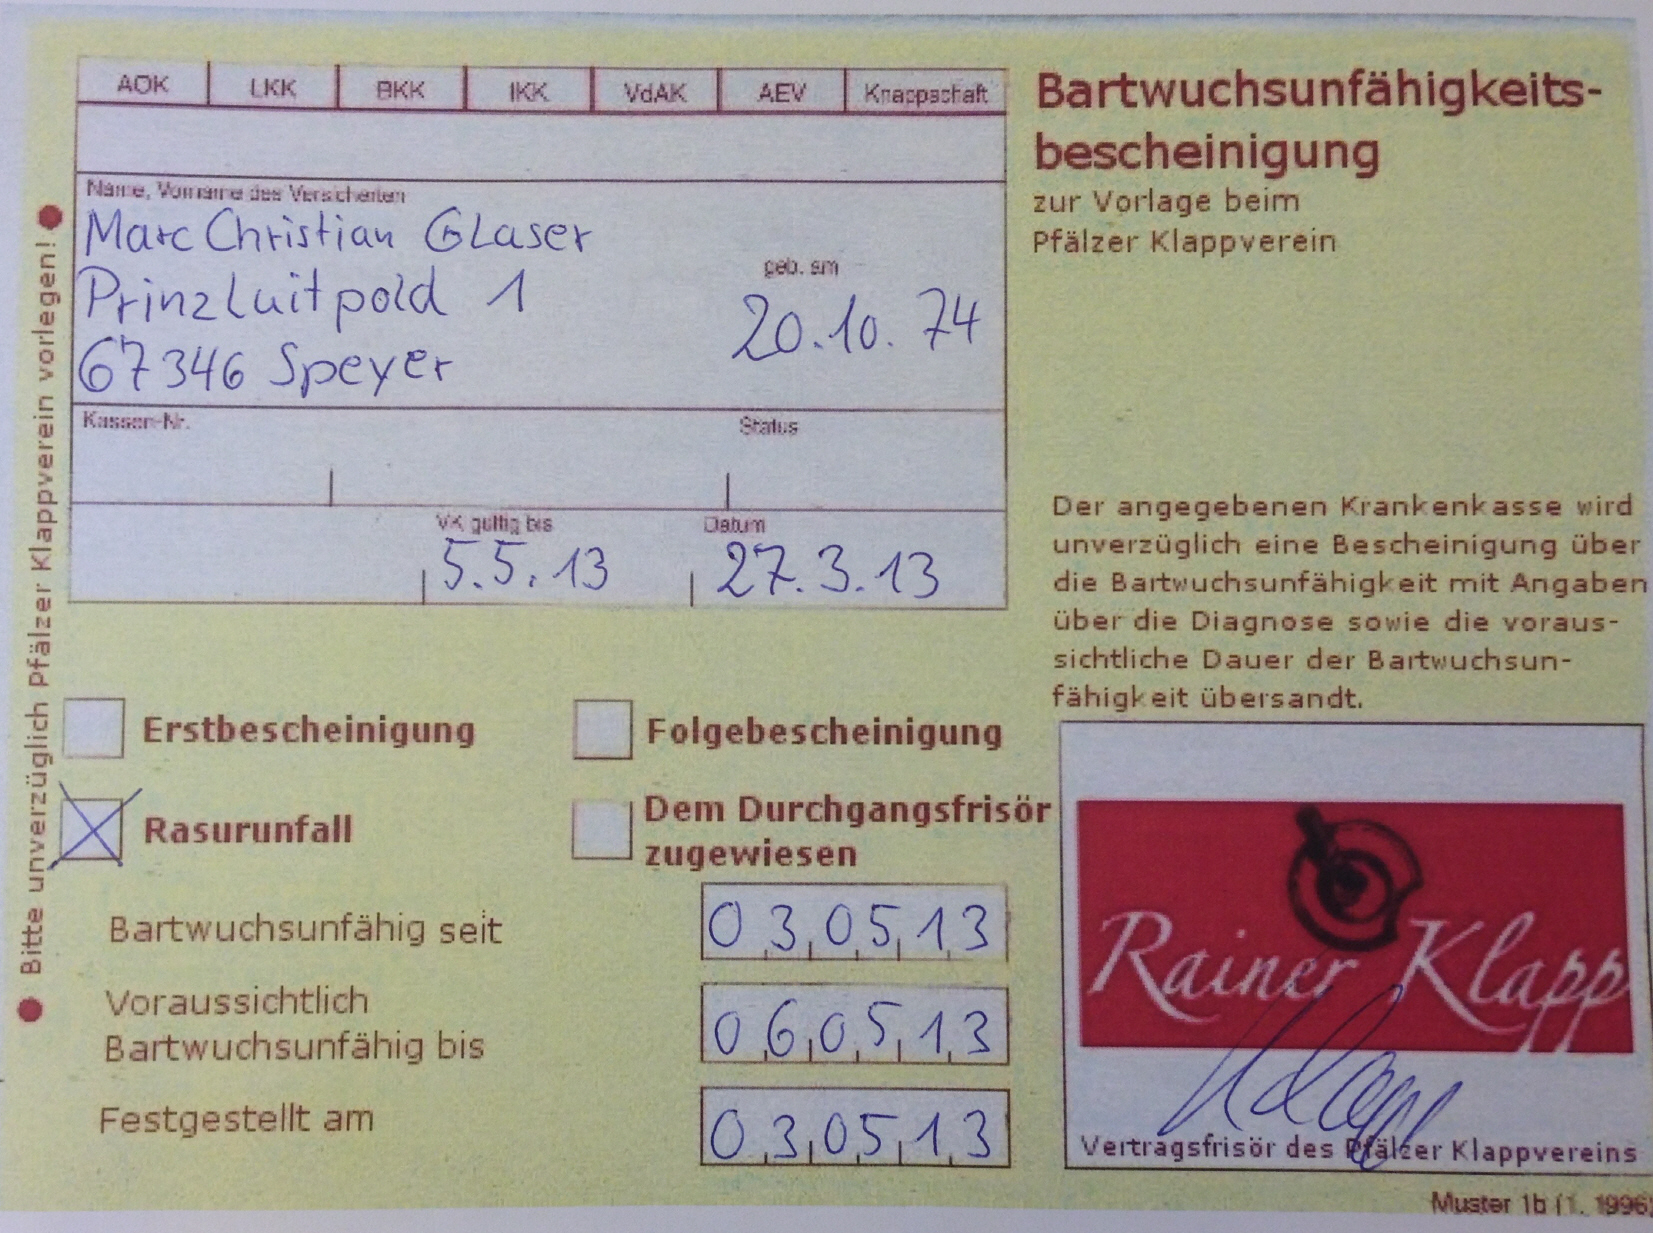 AOK LKK BKK IKK VdAK AEV Knappschaft
Bartwuchsunfähigkeits-
bescheinigung
zur Vorlage beim
Pfälzer Klappverein
Name, Vorname des Versicherten
Marc Christian Glaser
Prinz Luitpold 1
67346 Speyer
geb. am
20.10.74
Kassen-Nr.
Status
VK gültig bis
5.5.13
Datum
27.3.13
Bitte unverzüglich Pfälzer Klappverein vorlegen!
Der angegebenen Krankenkasse wird
unverzüglich eine Bescheinigung über
die Bartwuchsunfähigkeit mit Angaben
über die Diagnose sowie die voraus-
sichtliche Dauer der Bartwuchsun-
fähigkeit übersandt.
Erstbescheinigung
Folgebescheinigung
Rasurunfall
Dem Durchgangsfrisör
zugewiesen
Bartwuchsunfähig seit
03 05 13
Voraussichtlich
Bartwuchsunfähig bis
06 05 13
Festgestellt am
03 05 13
Rainer Klapp
Vertragsfrisör des Pfälzer Klappvereins
Muster 1b (1. 1996)